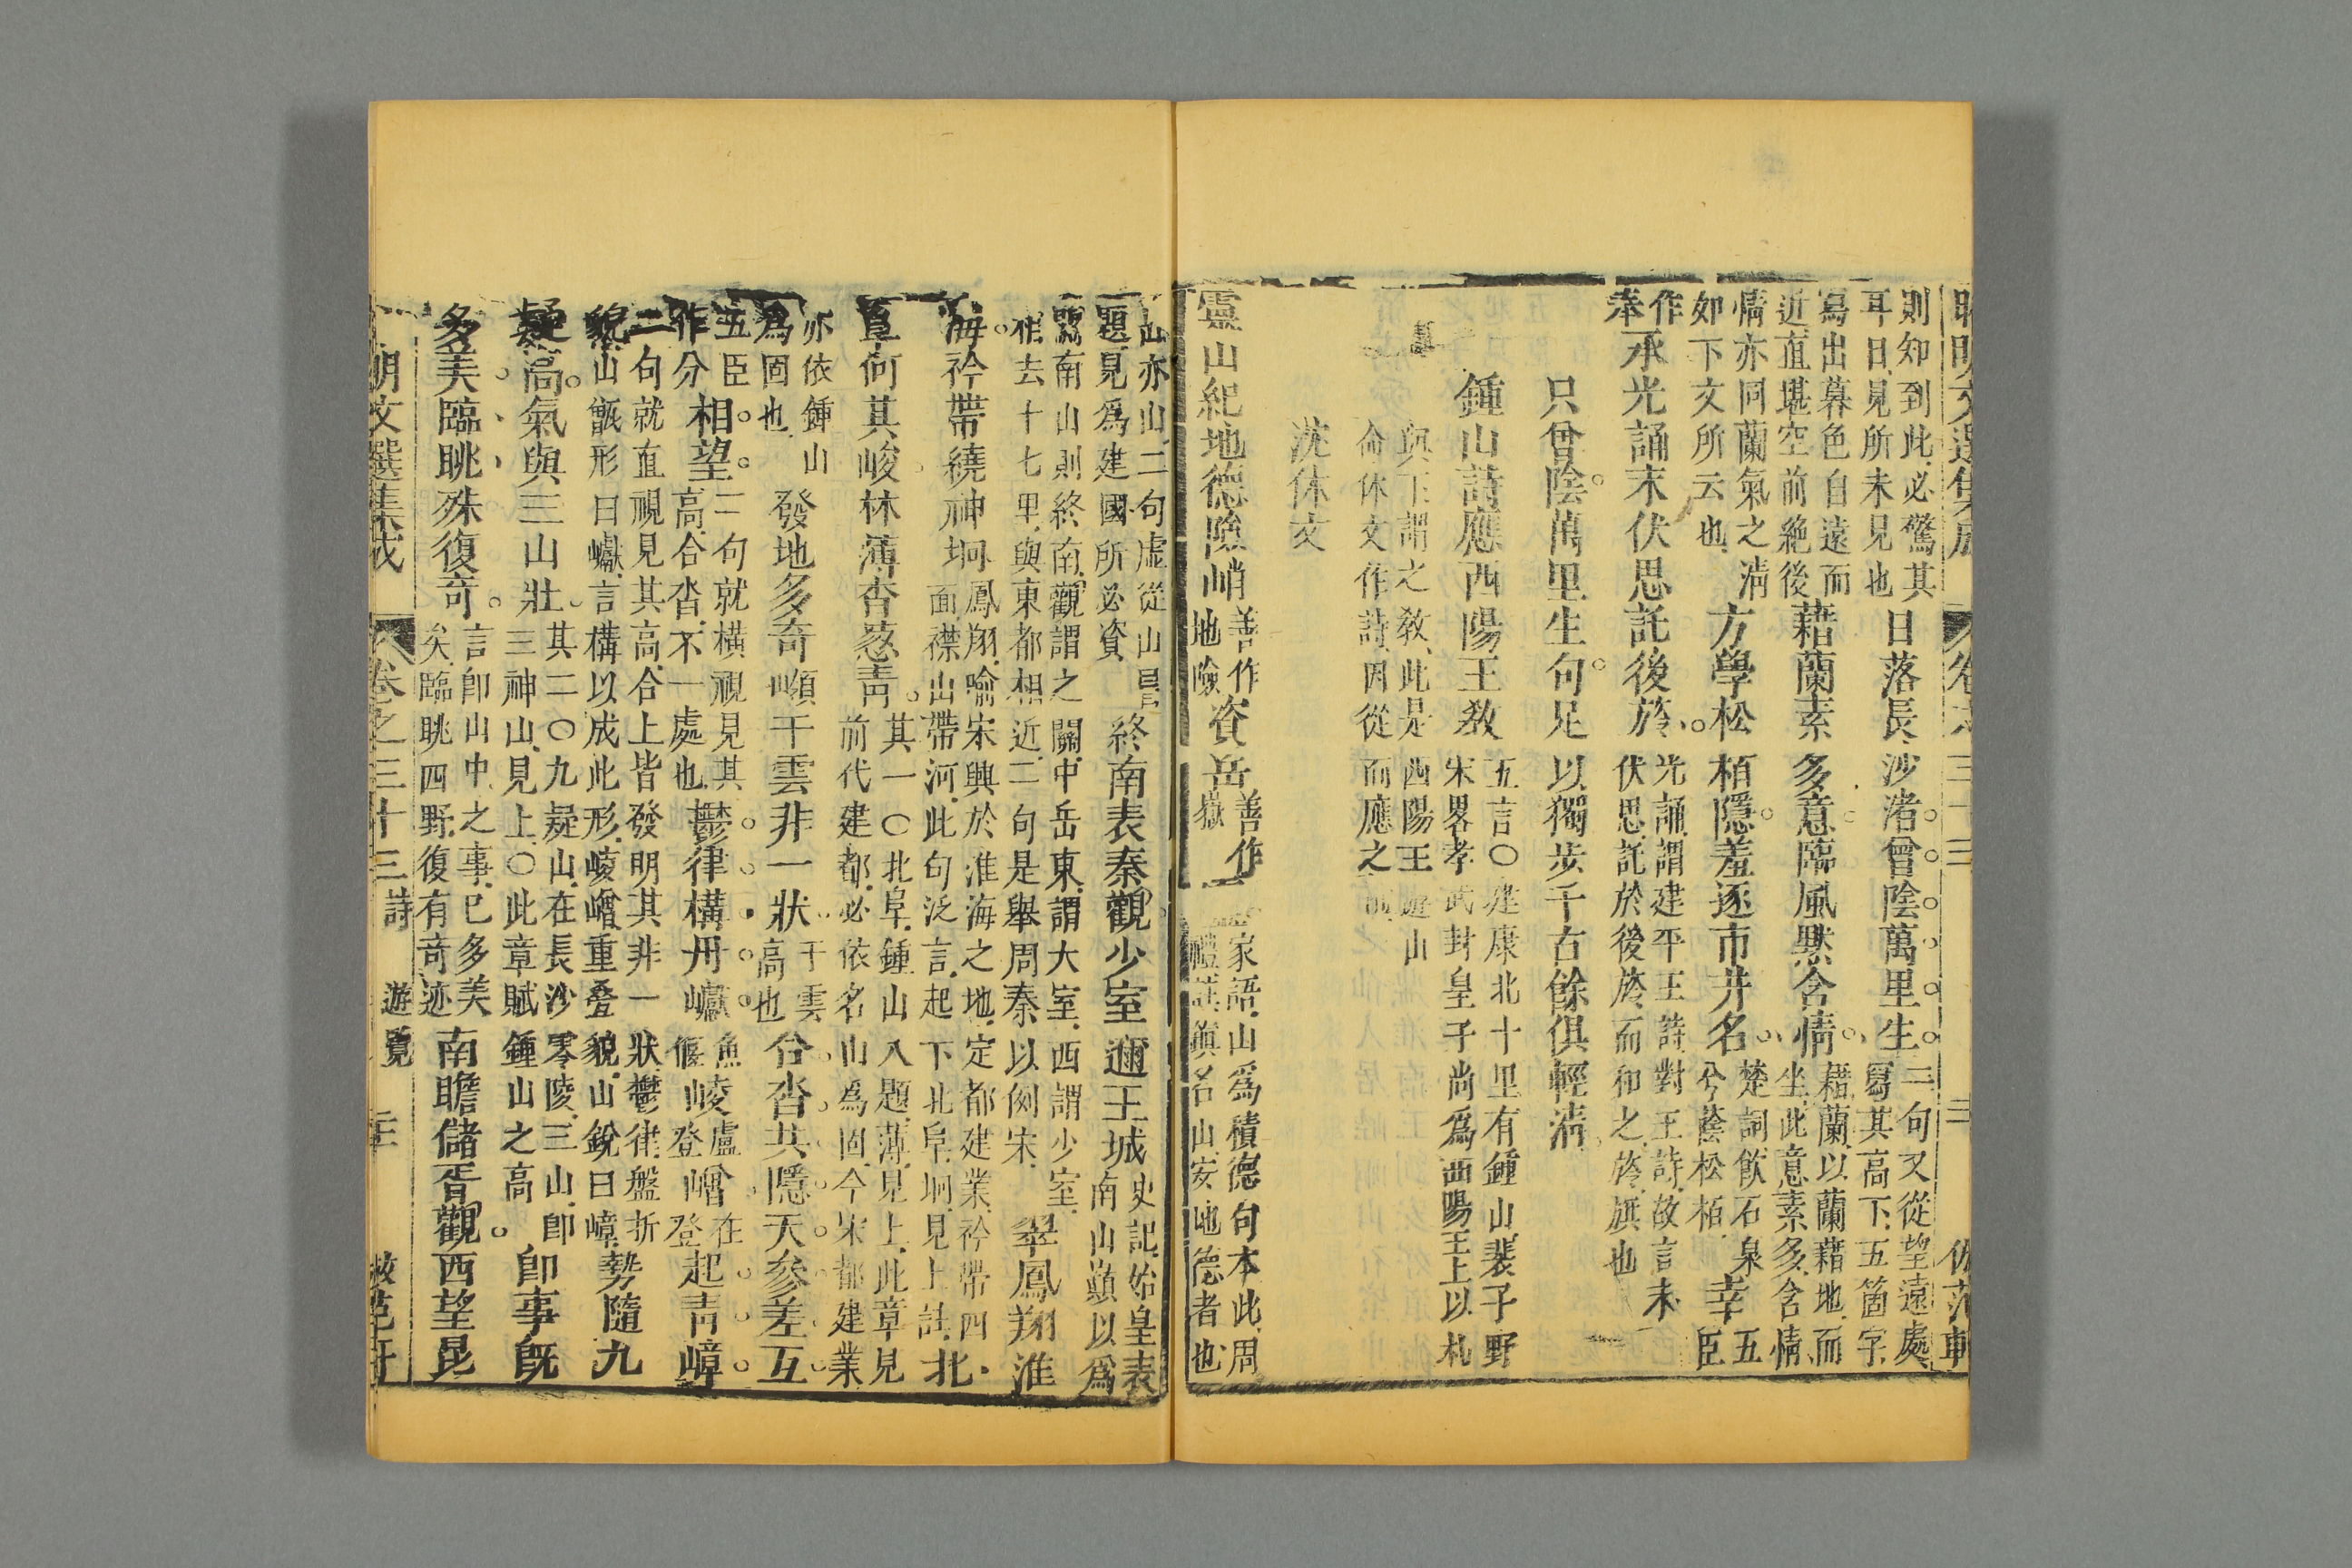 昭明文選集成 卷之三十三 三
則知到此必驚其耳目見所未見也 日落長沙渚曾陰萬里生 二句又從望遠處寫其高下五箇字
寫出暮色自遠而近直堪空前絶後 藉蘭素多意臨風默含情 藉蘭以蘭藉地而坐此意素多含情
情亦同蘭氣之淸如下文所云也 方學松栢隱羞逐市井名 楚詞飲石泉兮蔭松栢 幸 五臣
作奉 承光誦末伏思託後旍 光誦謂建平王詩對王詩故言末伏思託於後旍而和之旍旗也
只曾陰萬里生句足以獨步千古餘俱輕淸
鍾山詩應西陽王敎 五言○建康北十里有鍾山裴子野宋畧孝武封皇子尚爲西陽王上以札
與下謂之敎此是西陽王遊山命休文作詩因從而應之
沈休文
靈山紀地德險峭 善作地嶮 資岳 善作嶽 家語山爲積德句本此周禮註鎭名山安地德者也
此亦山二句虛從山冒題見爲建國所必資 終南表秦觀少室邇王城 史記始皇表南山巔以爲
闕南山則終南觀謂之闕中岳東謂大室西謂少室相去十七里與東都相近二句是舉周秦以例宋 翠鳳翔淮
海衿帶繞神坰 鳳翔喻宋興於淮海之地定都建業衿帶四面襟山帶河此句泛言起下北阜坰見上註 北
阜何其峻林薄杳葱靑 其一○北阜鍾山入題薄見上此章見前代建都必依名山爲固今宋都建業
亦依鍾山爲固也 發地多奇嶺干雲非一狀 干雲高也 合沓共隱天參差互
五臣作分 相望 二句就橫視見其高合沓不一處也 鬱律構丹巘 魚偃 崚 盧登 嶒 在登 起靑嶂
二句就直視見其高合上皆發明其非一狀鬱律盤折貌山甑形曰巘言構以成此形崚嶒重叠貌山銳曰嶂 勢隨九
疑高氣與三山壯 其二○九疑山在長沙零陵三山卽三神山見上○此章賦鍾山之高 卽事旣
多美臨眺殊復奇 言卽山中之事已多美矣臨眺四野復有奇迹 南瞻儲胥觀西望昆
明文選集成 卷之三十三 詩 遊覽